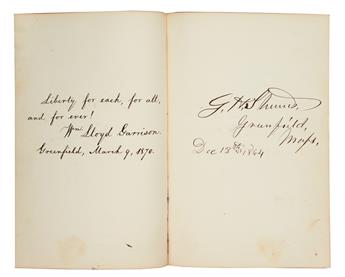 Liberty for each, for all,
and for ever!
Wm. Lloyd Garrison.
Greenfield, March 9, 1870.
Greenfield,
Mass,
Dec 18th 1864